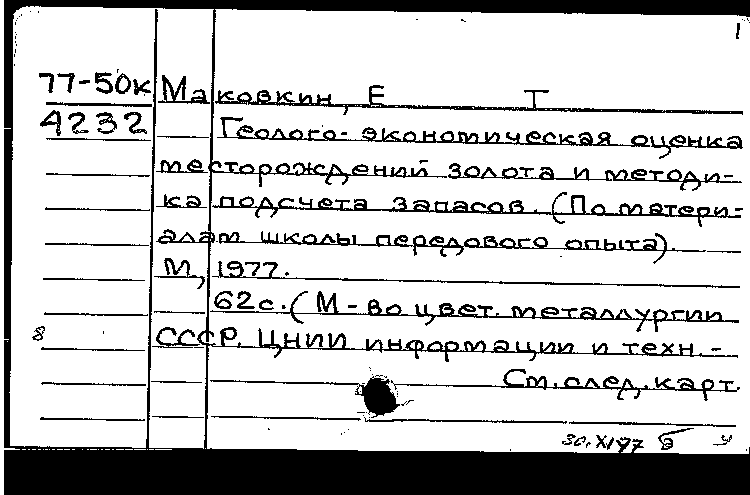 1
77-50к Маковкин, Е Т
4232 Геолого-экономическая оценка
месторождений золота и методи-
ка подсчета запасов. (По матери-
алам школы передового опыта).
М, 1977.
62с. (М-во цвет. металлургии
8 СССР. ЦНИИ информации и техн.-
См. след. карт.
30.XI77